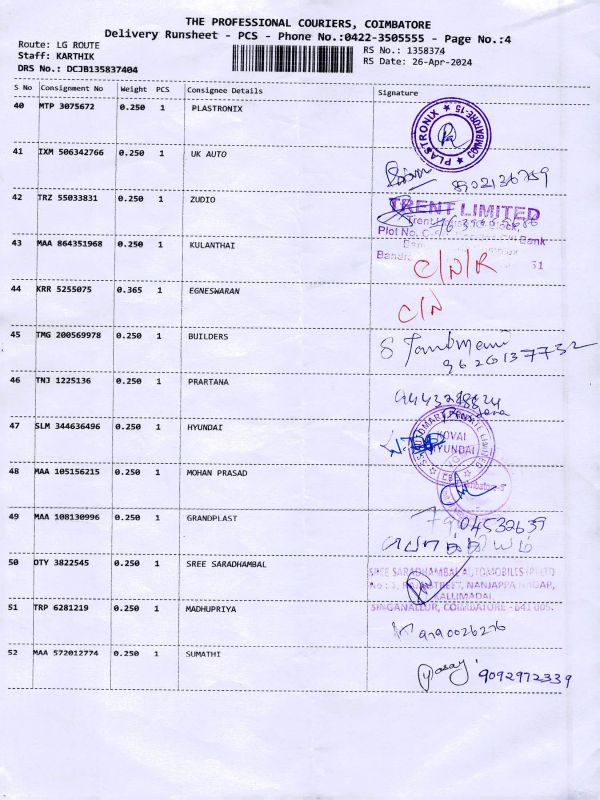 THE PROFESSIONAL COURIERS, COIMBATORE
Delivery Runsheet - PCS - Phone No.:0422-3505555 - Page No.:4
Route: LG ROUTE
RS No.: 1358374
Staff: KARTHIK
RS Date: 26-Apr-2024
DRS No.: DCJB135837404
S No Consignment No Weight PCS Consignee Details Signature
40 MTP 3075672 0.250 1 PLASTRONIX
★ PLASTRONIX ★ COIMBATORE-15
41 IXM 506342766 0.250 1 UK AUTO
42 TRZ 55033831 0.250 1 ZUDIO
TRENT LIMITED
Plot No. Bank
43 MAA 864351968 0.250 1 KULANTHAI
C/N/R
44 KRR 5255075 0.365 1 EGNESWARAN
C/N
45 TMG 200569978 0.250 1 BUILDERS
9620137732
46 TNJ 1225136 0.250 1 PRARTANA
47 SLM 344636496 0.250 1 HYUNDAI
KOVAI
HYUNDAI
48 MAA 105156215 0.250 1 MOHAN PRASAD
49 MAA 108130996 0.250 1 GRANDPLAST
04532639
50 DTY 3822545 0.250 1 SREE SARADHAMBAL
SREE SARADHAMBAL AUTOMOBILES (P) LTD
STREET, NANJAPPA NAGAR,
KALLIMADAI,
SINGANALLUR, COIMBATORE - 641 005.
51 TRP 6281219 0.250 1 MADHUPRIYA
9190026276
52 MAA 572012774 0.250 1 SUMATHI
9092972339